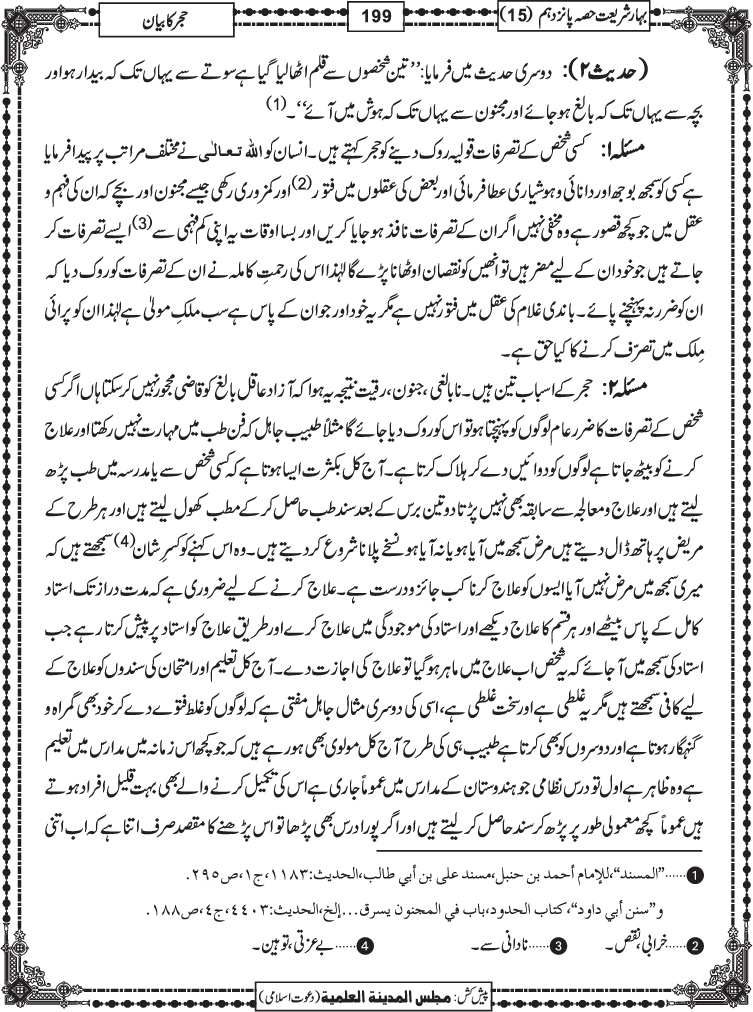 بہارشریعت حصہ پانزدہم (15)
199
حجر کا بیان
(حدیث ۲): دوسری حدیث میں فرمایا: ’’تین شخصوں سے قلم اٹھا لیا گیا ہے سوتے سے یہاں تک کہ بیدار ہو اور
بچہ سے یہاں تک کہ بالغ ہو جائے اور مجنون سے یہاں تک کہ ہوش میں آئے‘‘۔(1)
مسئلہ ۱: کسی شخص کے تصرفات قولیہ روک دینے کو حجر کہتے ہیں۔ انسان کو اللہ تعالیٰ نے مختلف مراتب پر پیدا فرمایا
ہے کسی کو سمجھ بوجھ اور دانائی و ہوشیاری عطا فرمائی اور بعض کی عقلوں میں فتور(2) اور کمزوری رکھی جیسے مجنون اور بچے کہ ان کی فہم و
عقل میں جو کچھ قصور ہے وہ مخفی نہیں اگر ان کے تصرفات نافذ ہو جایا کریں اور بسا اوقات یہ اپنی کم فہمی سے(3) ایسے تصرفات کر
جاتے ہیں جو خود ان کے لیے مضر ہیں تو انھیں کو نقصان اوٹھانا پڑے گا لہٰذا اس کی رحمتِ کاملہ نے ان کے تصرفات کو روک دیا کہ
ان کو ضرر نہ پہنچنے پائے۔ باندی غلام کی عقل میں فتور نہیں ہے مگر یہ خود اور جو ان کے پاس ہے سب ملکِ مولیٰ ہے لہٰذا ان کو پرائی
مِلک میں تصرّف کرنے کا کیا حق ہے۔
مسئلہ ۲: حجر کے اسباب تین ہیں۔ نابالغی، جنون، رقیت نتیجہ یہ ہوا کہ آزاد عاقل بالغ کو قاضی محجور نہیں کر سکتا ہاں اگر کسی
شخص کے تصرفات کا ضرر عام لوگوں کو پہنچتا ہو تو اس کو روک دیا جائے گا مثلاً طبیب جاہل کہ فن طب میں مہارت نہیں رکھتا اور علاج
کرنے کو بیٹھ جاتا ہے لوگوں کو دوائیں دے کر ہلاک کرتا ہے۔ آج کل بکثرت ایسا ہوتا ہے کہ کسی شخص سے یا مدرسہ میں طب پڑھ
لیتے ہیں اور علاج و معالجہ سے سابقہ بھی نہیں پڑتا دو تین برس کے بعد سند طب حاصل کرکے مطب کھول لیتے ہیں اور ہر طرح کے
مریض پر ہاتھ ڈال دیتے ہیں مرض سمجھ میں آیا ہو یا نہ آیا ہو نسخے پلانا شروع کر دیتے ہیں۔ وہ اس کہنے کو کسرِ شان(4) سمجھتے ہیں کہ
میری سمجھ میں مرض نہیں آیا ایسوں کو علاج کرنا کب جائز و درست ہے۔ علاج کرنے کے لیے ضروری ہے کہ مدت دراز تک استاد
کامل کے پاس بیٹھے اور ہر قسم کا علاج دیکھے اور استاد کی موجودگی میں علاج کرے اور طریق علاج کو استاد پر پیش کرتا رہے جب
استاد کی سمجھ میں آ جائے کہ یہ شخص اب علاج میں ماہر ہوگیا تو علاج کی اجازت دے۔ آج کل تعلیم اور امتحان کی سندوں کو علاج کے
لیے کافی سمجھتے ہیں مگر یہ غلطی ہے اور سخت غلطی ہے، اسی کی دوسری مثال جاہل مفتی ہے کہ لوگوں کو غلط فتوے دے کر خود بھی گمراہ و
گنہگار ہوتا ہے اور دوسروں کو بھی کرتا ہے طبیب ہی کی طرح آج کل مولوی بھی ہو رہے ہیں کہ جو کچھ اس زمانہ میں مدارس میں تعلیم
ہے وہ ظاہر ہے اول تو درس نظامی جو ہندوستان کے مدارس میں عموماً جاری ہے اس کی تکمیل کرنے والے بھی بہت قلیل افراد ہوتے
ہیں عموماً کچھ معمولی طور پر پڑھ کر سند حاصل کر لیتے ہیں اور اگر پورا درس بھی پڑھا تو اس پڑھنے کا مقصد صرف اتنا ہے کہ اب اتنی
1 ......”المسند“، للإمام أحمد بن حنبل، مسند علی بن أبي طالب، الحدیث: ۱۱۸۳، ج۱، ص۲۹۵.
و”سنن أبي داود“، کتاب الحدود، باب في المجنون یسرق...إلخ، الحدیث: ۴۴۰۳، ج۴، ص۱۸۸.
2 ......خرابی، نقص۔ 3 ......نادانی سے۔ 4 ......بے عزتی، توہین۔
پیش کش: مجلس المدینة العلمیة (دعوت اسلامی)